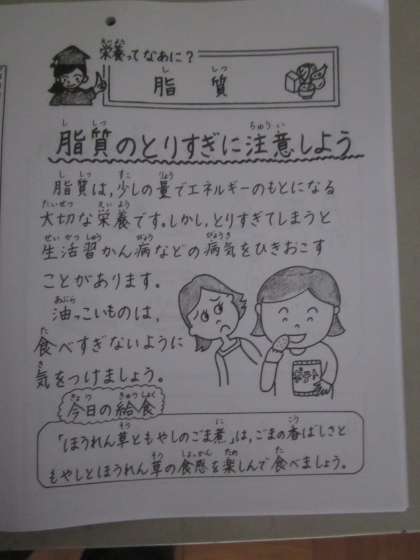 栄養ってなあに?
脂質
脂質のとりすぎに注意しよう
脂質は、少しの量でエネルギーのもとになる
大切な栄養です。しかし、とりすぎてしまうと
生活習かん病などの病気をひきおこす
ことがあります。
油っこいものは、
食べすぎないように
気をつけましょう。
今日の給食
「ほうれん草ともやしのごま煮」は、ごまの香ばしさと
もやしとほうれん草の食感を楽しんで食べましょう。